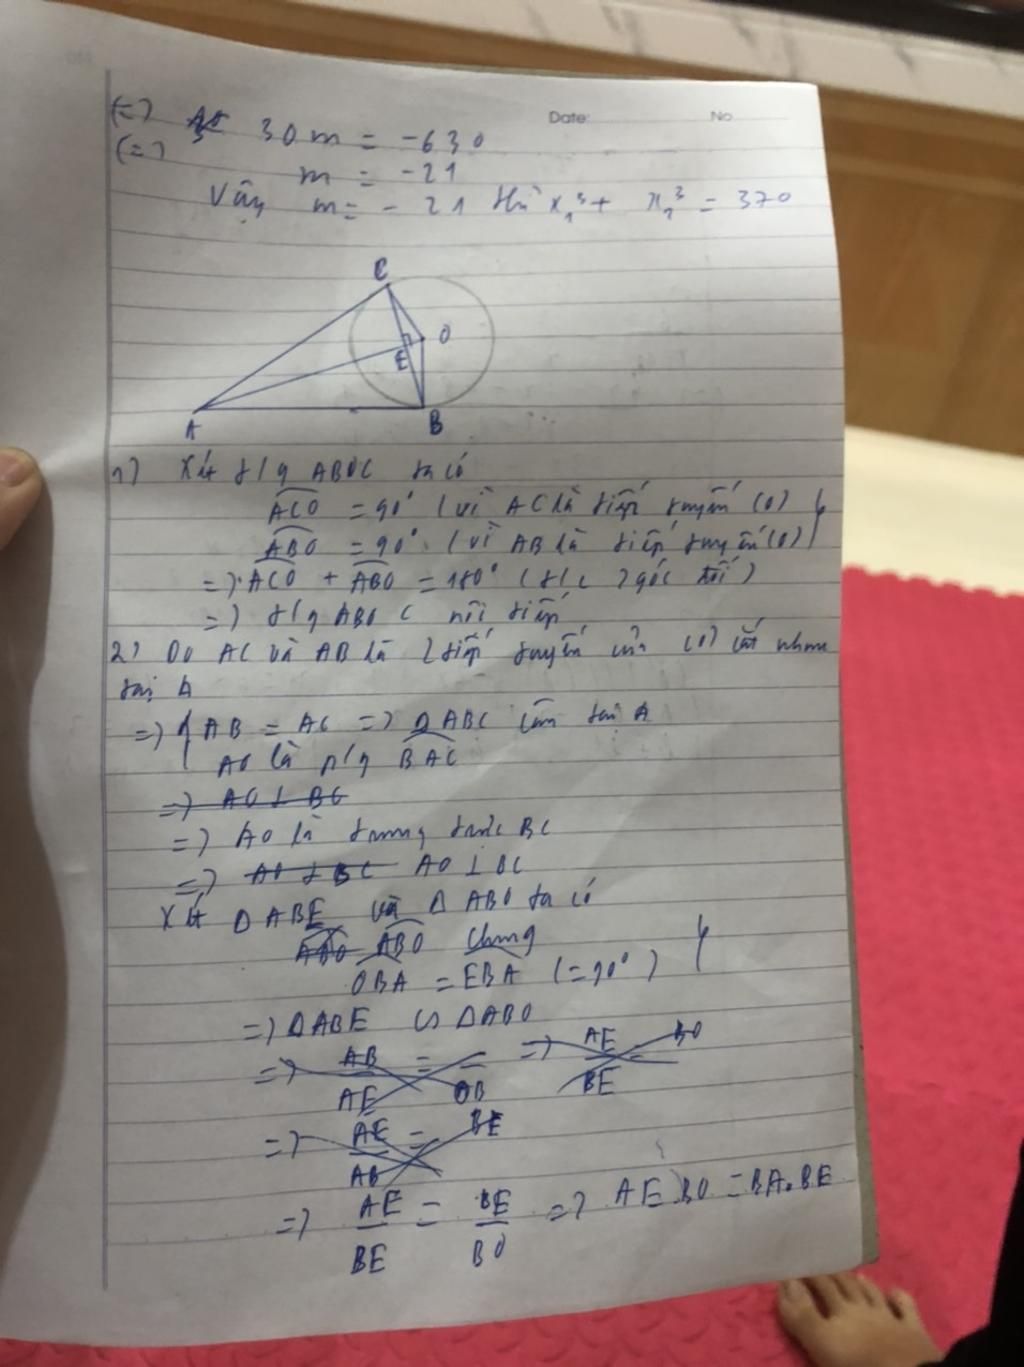 Date: No
(=) 30m = -630
(=) m = -21
Vậy m = -21 thì x₁³ + x₂³ = 370
C
O
E
A
B
1) Xét t/g ABOC ta có
ACO = 90° (vì AC là tiếp tuyến (O) }
ABO = 90° (vì AB là tiếp tuyến (O) }
=> ACO + ABO = 180° (t/c 2 góc đối)
=> t/g ABOC nội tiếp
2) Do AC và AB là 2 tiếp tuyến của (O) cắt nhau
tại A
=> { AB = AC => ΔABC cân tại A
AO là p/g BAC
=> AO ⊥ BC
=> AO là trung trực BC
=> AO ⊥ BC AO ⊥ BC
Xét ΔABE và ΔABO ta có
ABO ABO chung
OBA = EBA (= 90°) }
=> ΔABE ∽ ΔABO
=> AB/AE = /OB => AE/BE = BO
=> AE/AB = BE
=> AE/BE = BE/BO => AE.BO = BA.BE